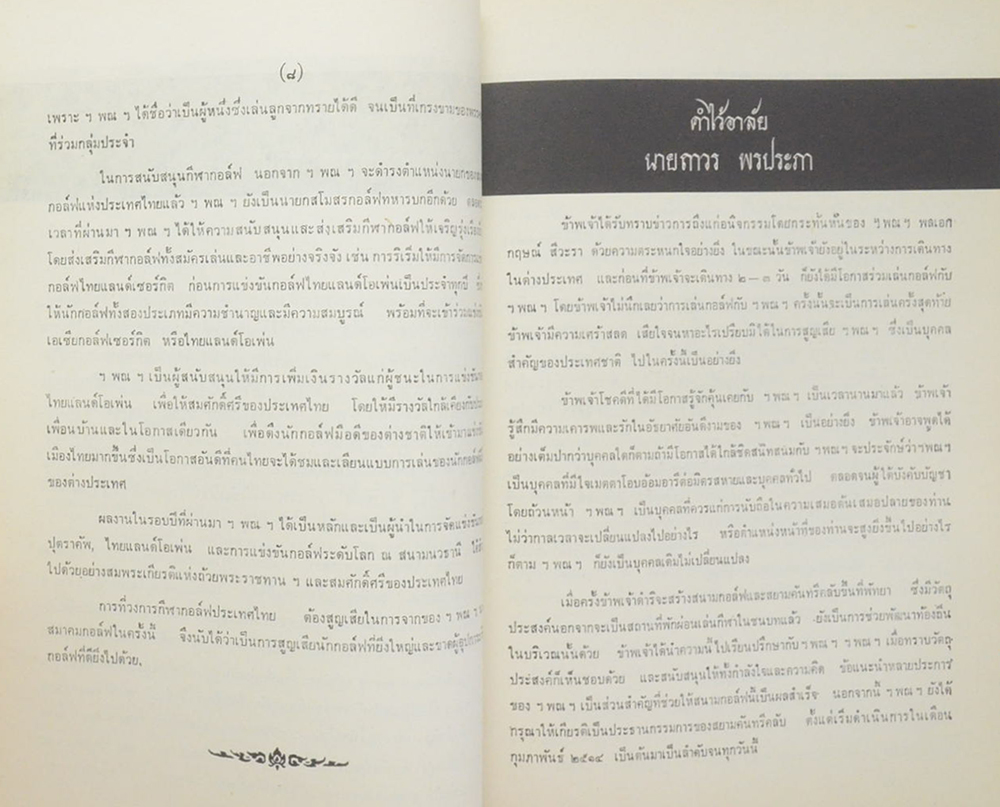 (๘)
เพราะ ฯ พณ ฯ ได้ชื่อว่าเป็นผู้หนึ่งซึ่งเล่นลูกจากทรายได้ดี จนเป็นที่เกรงขามของ
ที่ร่วมกลุ่มประจำ
ในการสนับสนุนกีฬากอล์ฟ นอกจาก ฯ พณ ฯ จะดำรงตำแหน่งนายก
กอล์ฟแห่งประเทศไทยแล้ว ฯ พณ ฯ ยังเป็นนายกสโมสรกอล์ฟทหารบกอีกด้วย
เวลาที่ผ่านมา ฯ พณ ฯ ได้ให้ความสนับสนุนและส่งเสริมกีฬากอล์ฟให้เจริญรุ่งเรือง
โดยส่งเสริมกีฬากอล์ฟทั้งสมัครเล่นและอาชีพอย่างจริงจัง เช่น การริเริ่มให้มีการจัดการ
กอล์ฟไทยแลนด์เซอร์กิต ก่อนการแข่งขันกอล์ฟไทยแลนด์โอเพ่นเป็นประจำทุกปี
ให้นักกอล์ฟทั้งสองประเภทมีความชำนาญและมีความสมบูรณ์ พร้อมที่จะเข้าร่วม
เอเซียกอล์ฟเซอร์กิต หรือไทยแลนด์โอเพ่น
ฯ พณ ฯ เป็นผู้สนับสนุนให้มีการเพิ่มเงินรางวัลแก่ผู้ชนะในการแข่งขัน
ไทยแลนด์โอเพ่น เพื่อให้สมศักดิ์ศรีของประเทศไทย โดยให้มีรางวัลใกล้เคียงกับ
เพื่อนบ้านและในโอกาสเดียวกัน เพื่อดึงนักกอล์ฟมือดีของต่างชาติให้เข้ามา
เมืองไทยมากขึ้นซึ่งเป็นโอกาสอันดีที่คนไทยจะได้ชมและเลียนแบบการเล่นของนักกอล์ฟ
ของต่างประเทศ
ผลงานในรอบปีที่ผ่านมา ฯ พณ ฯ ได้เป็นหลักและเป็นผู้นำในการจัดแข่งขัน
ปุตราคัพ, ไทยแลนด์โอเพ่น และการแข่งขันกอล์ฟระดับโลก ณ สนามนวธานี
ไปด้วยอย่างสมพระเกียรติแห่งถ้วยพระราชทาน ฯ และสมศักดิ์ศรีของประเทศไทย
การที่วงการกีฬากอล์ฟประเทศไทย ต้องสูญเสียในการจากของ ฯ พณ ฯ
สมาคมกอล์ฟในครั้งนี้ จึงนับได้ว่าเป็นการสูญเสียนักกอล์ฟที่ยิ่งใหญ่และขาดผู้อุปการะ
กอล์ฟที่ดียิ่งไปด้วย.
คำไว้อาลัย
นายถาวร พรประภา
ข้าพเจ้าได้รับทราบข่าวการถึงแก่อนิจกรรมโดยกระทันหันของ ฯ พณ ฯ พลเอก
กฤษณ์ สีวะรา ด้วยความตระหนกใจอย่างยิ่ง ในขณะนั้นข้าพเจ้ายังอยู่ในระหว่างการเดินทาง
ในต่างประเทศ และก่อนที่ข้าพเจ้าจะเดินทาง ๒ – ๓ วัน ก็ยังได้มีโอกาสร่วมเล่นกอล์ฟกับ
ฯ พณ ฯ โดยข้าพเจ้าไม่นึกเลยว่าการเล่นกอล์ฟกับ ฯ พณ ฯ ครั้งนั้นจะเป็นการเล่นครั้งสุดท้าย
ข้าพเจ้ามีความเศร้าสลด เสียใจจนหาอะไรเปรียบมิได้ในการสูญเสีย ฯ พณ ฯ ซึ่งเป็นบุคคล
สำคัญของประเทศชาติ ไปในครั้งนี้เป็นอย่างยิ่ง
ข้าพเจ้าโชคดีที่ได้มีโอกาสรู้จักคุ้นเคยกับ ฯ พณ ฯ เป็นเวลานานมาแล้ว ข้าพเจ้า
รู้สึกมีความเคารพและรักในอัธยาศัยอันดีงามของ ฯ พณ ฯ เป็นอย่างยิ่ง ข้าพเจ้าอาจพูดได้
อย่างเต็มปากว่าบุคคลใดก็ตามถ้ามีโอกาสได้ใกล้ชิดสนิทสนมกับ ฯ พณ ฯ จะประจักษ์ว่า ฯ พณ ฯ
เป็นบุคคลที่มีใจเมตตาโอบอ้อมอารีต่อมิตรสหายและบุคคลทั่วไป ตลอดจนผู้ใต้บังคับบัญชา
โดยถ้วนหน้า ฯ พณ ฯ เป็นบุคคลที่ควรแก่การนับถือในความเสมอต้นเสมอปลายของท่าน
ไม่ว่ากาลเวลาจะเปลี่ยนแปลงไปอย่างไร หรือตำแหน่งหน้าที่ของท่านจะสูงยิ่งขึ้นไปอย่างไร
ก็ตาม ฯ พณ ฯ ก็ยังเป็นบุคคลเดิมไม่เปลี่ยนแปลง
เมื่อครั้งข้าพเจ้าดำริจะสร้างสนามกอล์ฟและสยามคันทรีคลับขึ้นที่พัทยา ซึ่งมีวัตถุ
ประสงค์นอกจากจะเป็นสถานที่พักผ่อนเล่นกีฬาในชนบทแล้ว ยังเป็นการช่วยพัฒนาท้องถิ่น
ในบริเวณนั้นด้วย ข้าพเจ้าได้นำความนี้ไปเรียนปรึกษากับ ฯ พณ ฯ ฯ พณ ฯ เมื่อทราบวัตถุ
ประสงค์ก็เห็นชอบด้วย และสนับสนุนให้ทั้งกำลังใจและความคิด ข้อแนะนำหลายประการ
ของ ฯ พณ ฯ เป็นส่วนสำคัญที่ช่วยให้สนามกอล์ฟนี้เป็นผลสำเร็จ นอกจากนี้ ฯ พณ ฯ ยังได้
กรุณาให้เกียรติเป็นประธานกรรมการของสยามคันทรีคลับ ตั้งแต่เริ่มดำเนินการในเดือน
กุมภาพันธ์ ๒๕๑๔ เป็นต้นมาเป็นลำดับจนทุกวันนี้